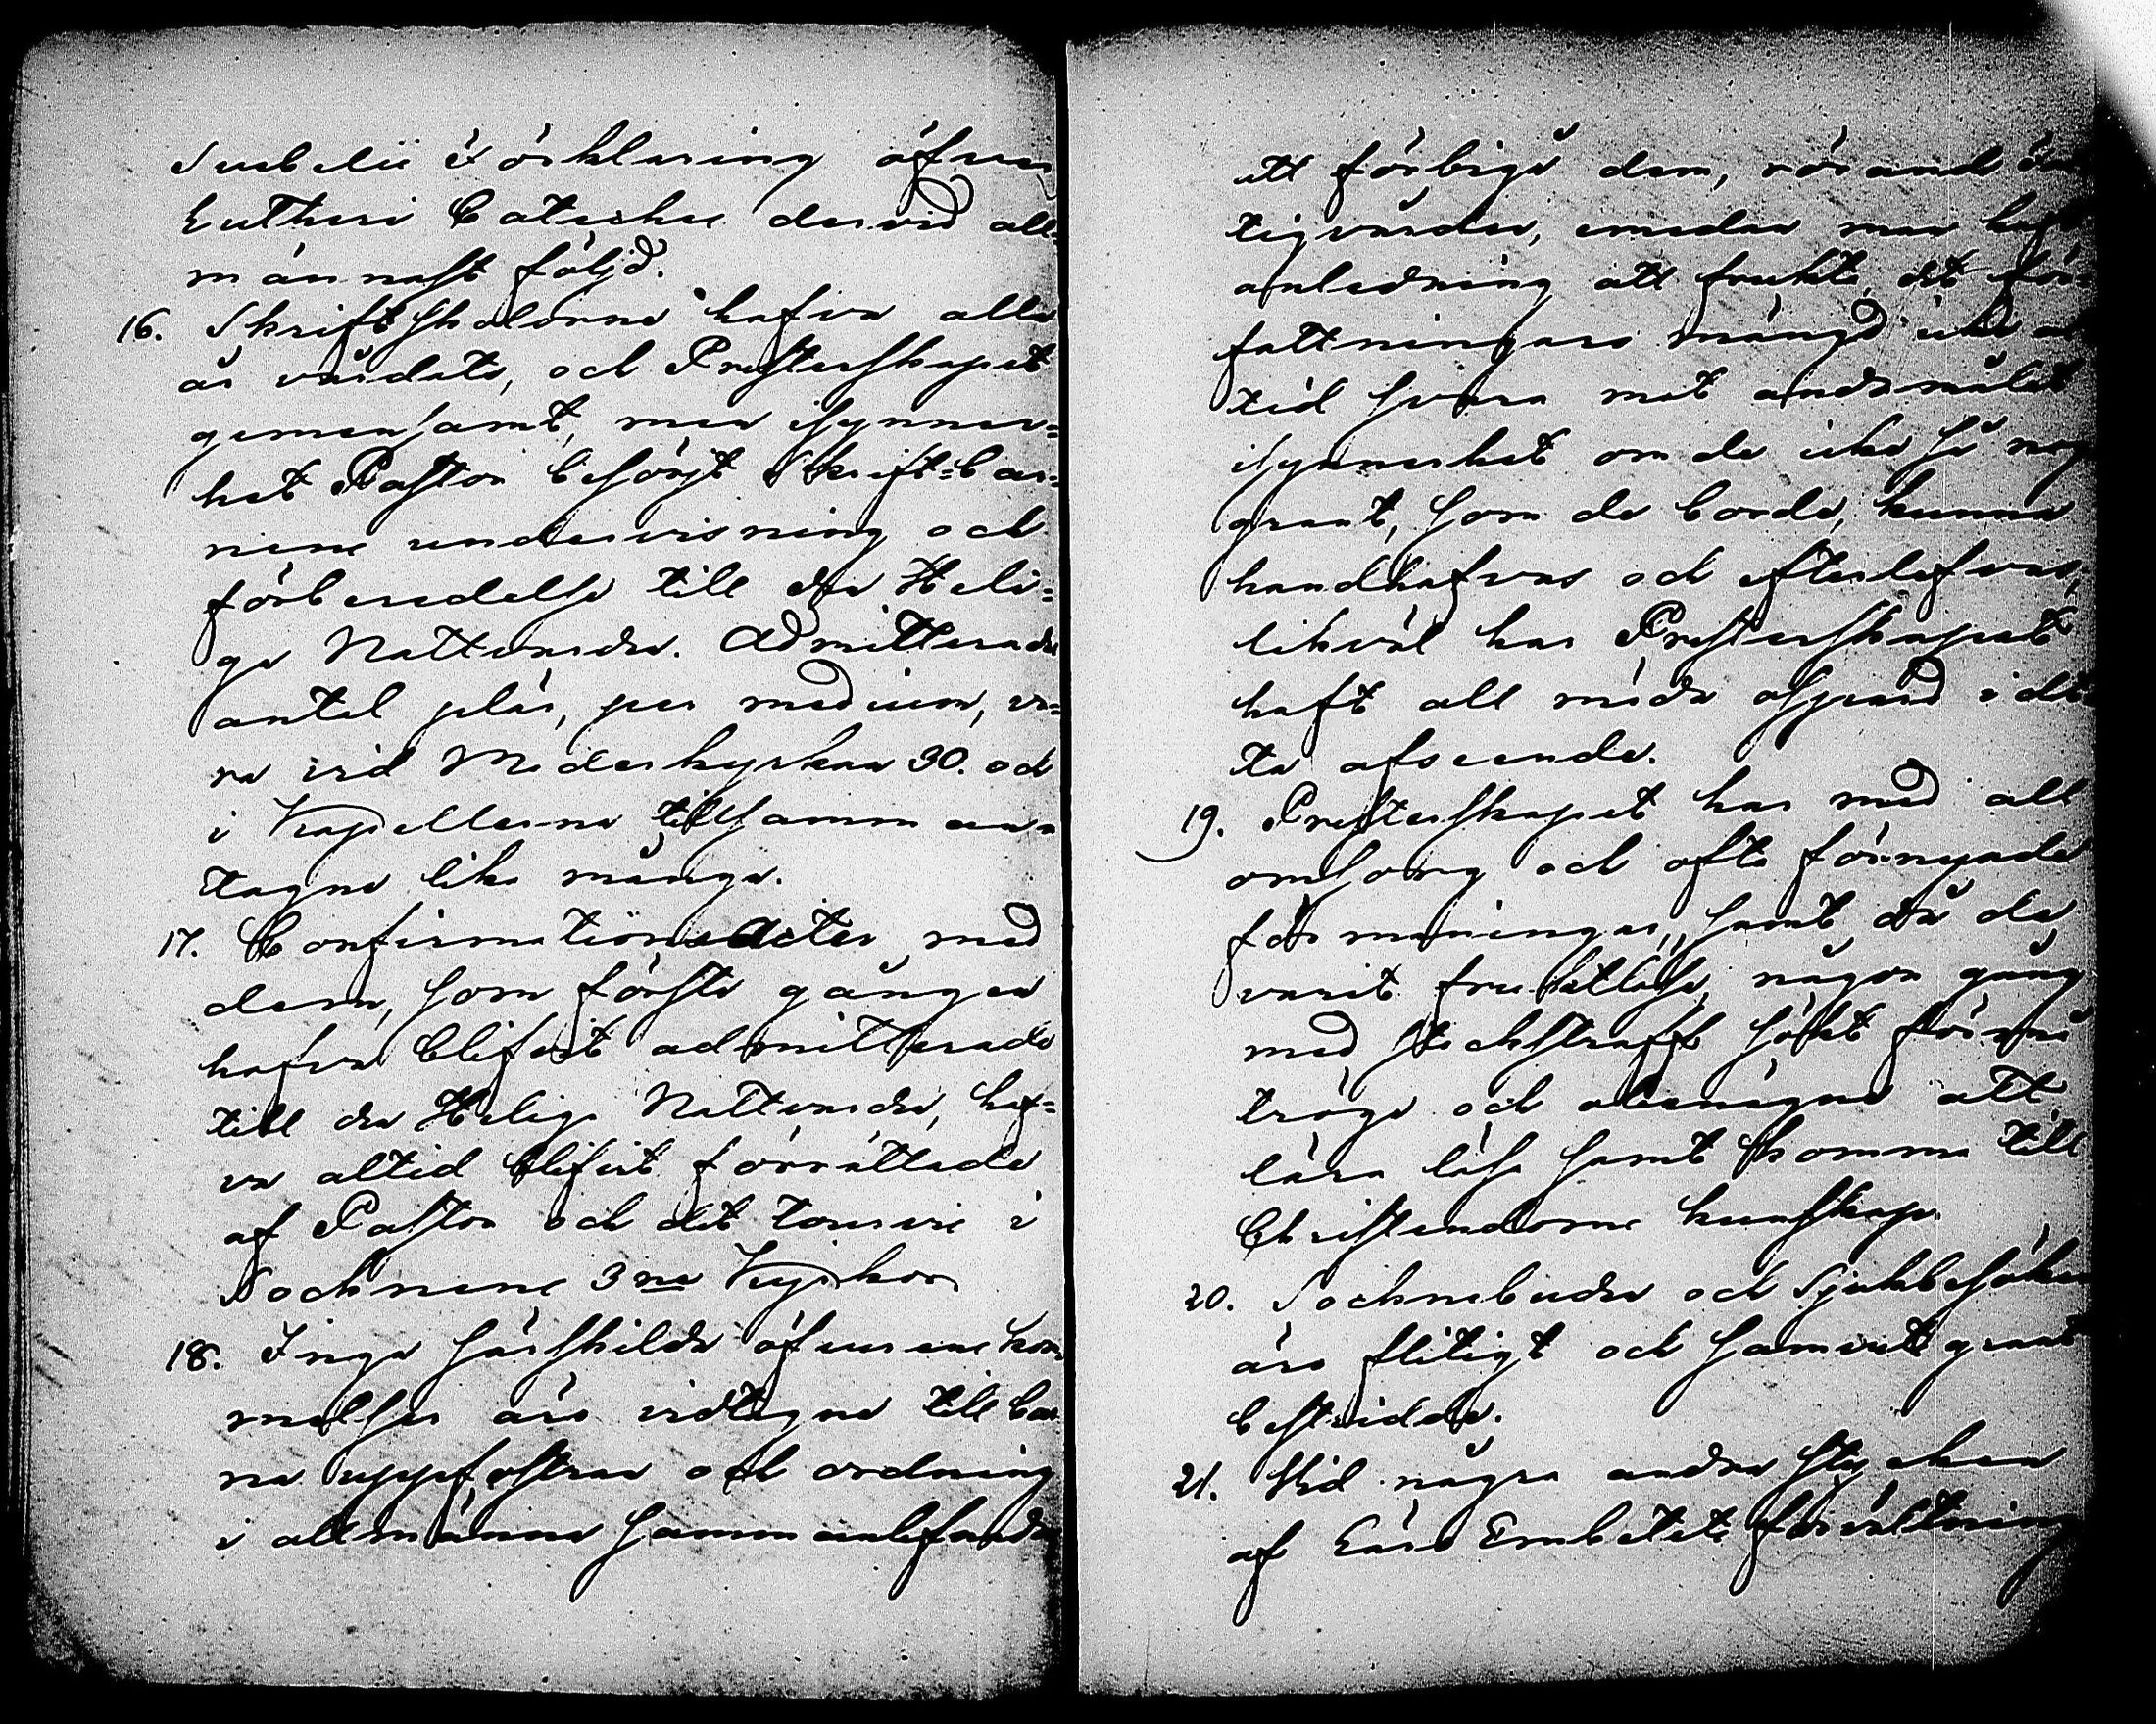 Svebelii Förklaring öfver
Lutheri Cateches dervid all-
männast följd.
16. Skriftskolorna hafva alla
år vårdats, och Presterskapet
gemensamt, men isynner=
het Pastor besörjt Skrift=bar=
nens undervisning och
förberedelse till den Heli=
ga Nattvarden. Admitterades
antal plär, per medium, va=
ra vid Moderkyrkan 30. och
i Kapellerna tillsamman
tagne lika många.
17. Confirmations Acter med
dem, som första gången
hafva blifvit admitterade
till den Heliga Nattvarden, haf=
va altid blifvit förrättade
af Pastor och det turvis i
Socknens 3ne Kyrkor
18. Inga särskilda öfverenskom
melser äro vidtagna till bar
na uppfostran och ordning
i allmänna sammanlefnaden
att förbigå dem, rörande
tigvården, emedan man haft
anledning att frukta, det för=
fattningars mängd icke al
tid svara mot ändamålet
isynnerhet om de icke så nog
grant, som de borde, kunna
handhafvas och efterlefvas,
likväl har Presterskapet
haft all möda ospard i det
ta afseende.
19. Presterskapet har med all
omsorg och ofta förnyade
förmaningar, samt då de
varit fruktlösa, någon gång
med stockstraff sökt förmå
tröga och obenägna att
lära läsa samt komma till
Christendoms kunskap.
20. Sockne buden och Sjukbesöken
äro flitigt och samvetsgrant
bestridda.
21. Vid några andra stycken
af Läro Embetets förvaltning